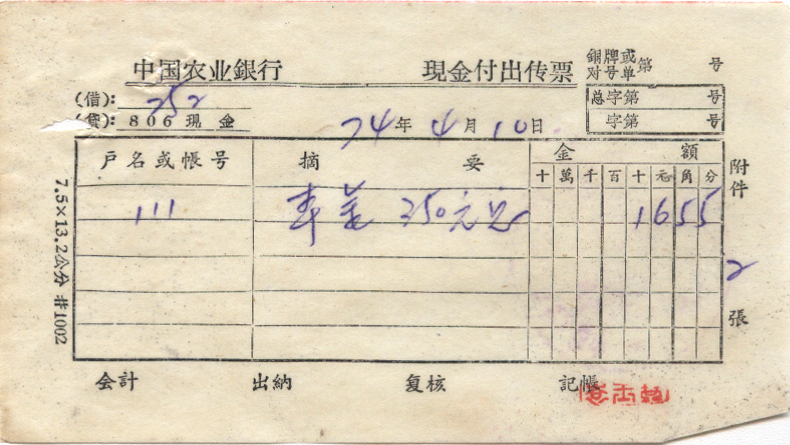 中国农业銀行 現金付出传票
銅牌或
对号单 第 号
(借): 252
(貸): 806 现金
总字第 号
字第 号
74年4月10日
戶名或帳号 摘要 金額
十 萬 千 百 十 元 角 分
111 250元 1655
附件 2 張
7.5×13.2公分 #1002
会計 出納 复核 記帳